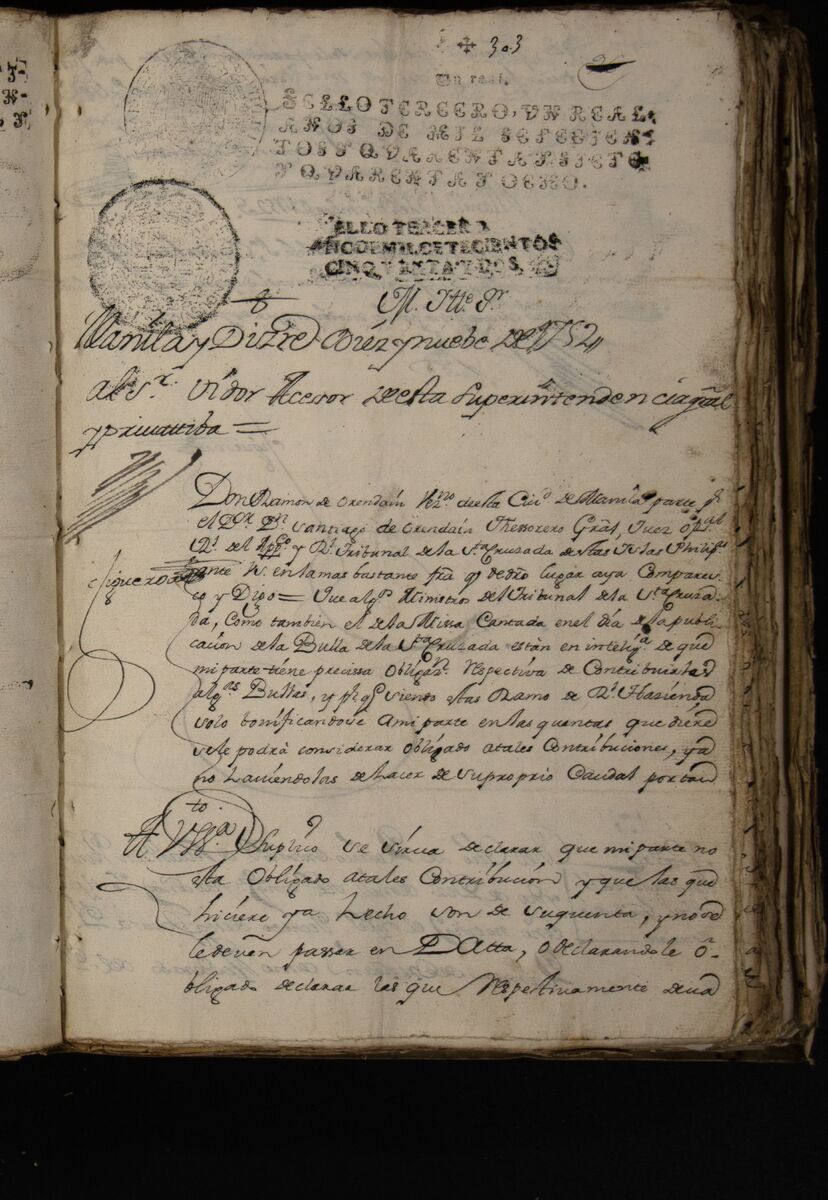 ✠ 303
Un real.
SELLO TERCERO, VN REAL,
AÑOS DE MIL SETECIEN,
TOS Y QVARENTA Y SIETE
Y QVARENTA Y OCHO.
ELLO TERCER
ÑO DE MIL SETECIENTOS
CINQVENTA Y DOS,
M. Itte. Sr.
Manila y Dizre Diez y nuebe de 1752
al Sr. Oidor Acesor de esta Superintendencia gral
y privattiba =
Don Ramon de Orendain Vzno. de esta Ciud. de Manila parte pr.
el Dor. Dn. Santiago de Orendain Thessorero Gral, Juez
Rl. del y Rl. Tribunal de la Sta Cruzada de estas Yslas Philips
ante V. en la mas bastante fra. q. de dro lugar aya Comparez
co y Digo = Que algs. Ministros del Tribunal de la Sta Cruza
Figueroa
da, como tambien el de la Missa Cantada en el dia de la publi
cacion de la Bulla de la Sta Cruzada estàn en inteliga. de que
mi parte tiene precissa Obligan. respectiva de Contribuirlas
algas Bullas, y pr. q. siendo estas Ramo de Rl. Hazienda
solo bonificandose a mi parte en las quentas que diere
se le podrà considerar obligado a tales Contribuciones, y a
no haciendolas de hacer de su proprio Caudal por tan
to
A V. Sa. Supco. se sirva declarar que mi parte no
esta Obligado a tales Contribucion y que las que
hiciere y a hecho son de su quenta, y no se
le deven passar en Datta, o declarandole o-
bligado declarar las que respectivamente deva